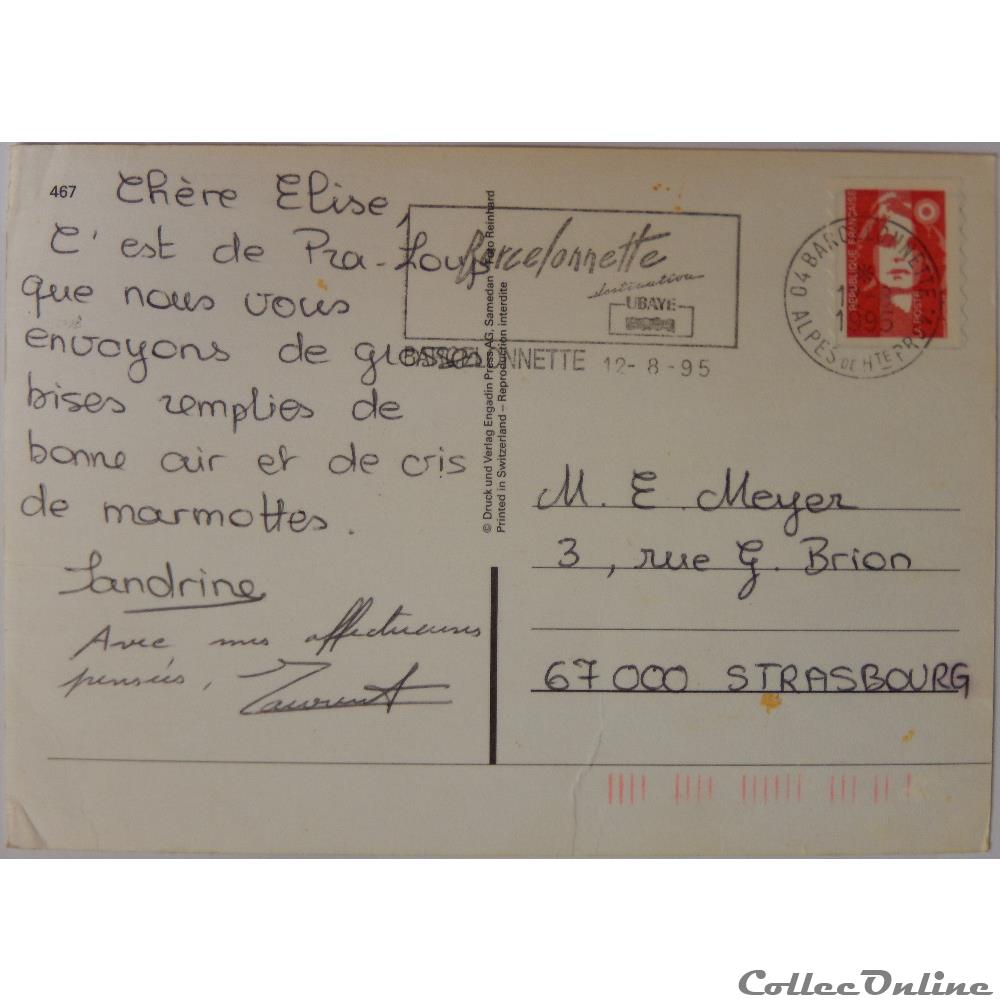 467
Chère Elise,
C'est de Pra-Loup
que nous vous
envoyons de grosses
bises remplies de
bonne air et de cris
de marmottes.
Sandrine
Avec mes affectueuses
pensées, Laurent
© Druck und Verlag Engadin Press AG, Samedan Foto Reinhard
Printed in Switzerland – Reproduction interdite
Barcelonnette
destination
UBAYE
BARCELONNETTE 12-8-95
04 BARCELONNETTE
ALPES DE HTE PR.
REPUBLIQUE FRANÇAISE
LA POSTE
M. E Meyer
3, rue G. Brion
67 000 STRASBOURG
CollecOnline